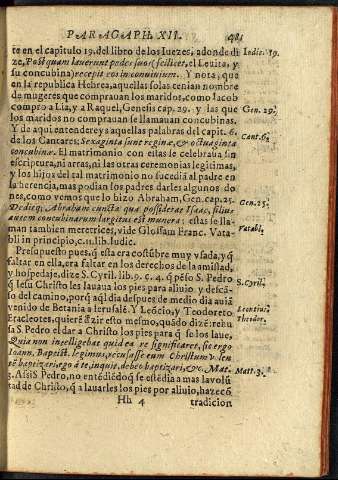 PARAGAPH. XII. 481
te en el capitulo 19. del libro de los Iuezes, adonde di Iudic. 19.
ze, Postquam lauerunt pedes suos (scilicet, el Leuita, y
su concubina) recepit eos in conuiuium. Y nota, que
en la republica Hebrea, aquellas solas tenian nombre
de mugeres que comprauan los maridos, como Iacob
compro a Lia, y a Raquel, Genesis cap. 29. y las que Gen. 29.
los maridos no comprauan se llamauan concubinas.
Y de aqui entendereys aquellas palabras del capit. 6.
de los Cantares; Sexaginta sunt reginæ, & octuaginta Cant. 6.
concubinæ. El matrimonio con estas se celebraua sin
escriptura, ni arras, ni las otras ceremonias legitimas,
y los hijos del tal matrimonio no sucediã al padre en
la herencia, mas podian los padres darles algunos do
nes, como vemos que lo hizo Abraham, Gen. cap. 25. Gen. 25.
Deditq; Abraham cuncta quæ possiderat Isaac, filijs
autem concubinarum largitus est munera: estas se lla-
man tambien meretrices, vide Glossam Franc. Vata- Vatabl.
bli in principio, c. 11. lib. Iudic.
Presupuesto pues, q̃ esta era costũbre muy vsada, y q̃
faltar en ella, era faltar en los derechos de la amistad,
y hospedaje, dize S. Cyril. lib. 9. c. 4. q̃ pẽso S. Pedro S. Cyril.
q̃ Iesu Christo les lauaua los pies para aliuio y descã-
so del camino, porq̃ aql̃ dia despues de medio dia auiã
venido de Betania a Ierusalẽ. Y Leõcio, y Teodoreto Leontius
Eracleotes, quierẽ d̃zir esto mesmo, quãdo dizẽ: rehu Theodor.
sa S. Pedro el dar a Christo los pies para q̃ se los laue,
Quia non intelligebat quid ea re significaret, sic ergo
Ioann. Baptist. legimus, recusasse eum Christum volen
tẽ baptizari, ego à te, inquit, debeo baptizari, &c. Mat. Matt. 3.
3. Assi S. Pedro, no entẽdiẽdo q̃ se estẽdia a mas la volũ
tad de Christo, q̃ a lauarles los pies por aliuio, hazec̃õ
Hh 4 tradicion